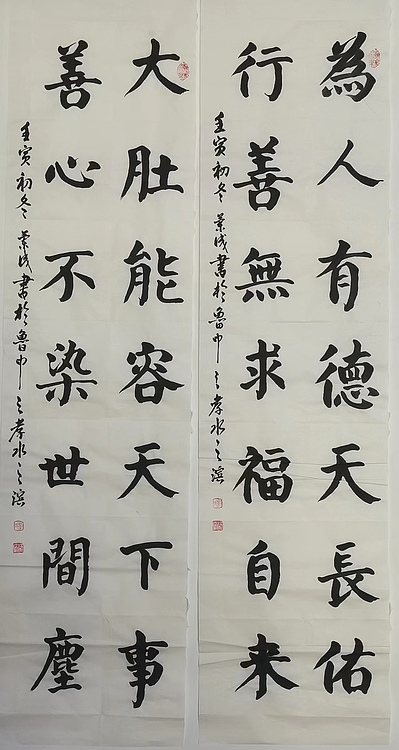 為人有德天長佑
行善無求福自来
壬寅初冬 景成書於魯中之孝水之滨
大肚能容天下事
善心不染世間塵
壬寅初冬 景成書於魯中之孝水之滨